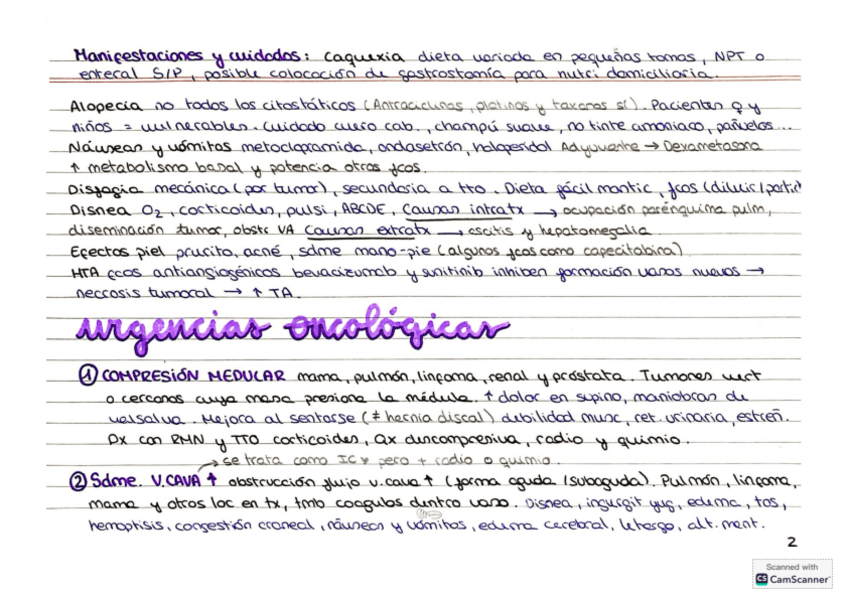 Manifestaciones y cuidados: Caquexia dieta variada en pequeñas tomas, NPT o
enteral S/P, posible colocación de gastrostomía para nutri domiciliaria.
Alopecia no todos los citostáticos (Antraciclinas, platinos y taxanos sí). Pacientes ♀ y
niños = vulnerables. Cuidado cuero cab., champú suave, no tinte amoniaco, pañuelos...
Náuseas y vómitos metoclopramida, ondasetrón, haloperidol Adyuvante → Dexametasona
↑ metabolismo basal y potencia otros fcos.
Disfagia mecánica (por tumor), secundaria a tto. Dieta fácil mastic, fcos (diluir/partir)
Disnea O₂, corticoides, pulsi, ABCDE, Causas intratx → ocupación parénquima pulm,
diseminación tumor, obstr VA Causas extratx → ascitis y hepatomegalia.
Efectos piel prurito, acné, sdme mano-pie (algunos fcos como capecitabina)
HTA fcos antiangiogénicos bevacizumab y sunitinib inhiben formación vasos nuevos →
necrosis tumoral → ↑ TA.
urgencias oncológicas
① COMPRESIÓN MEDULAR mama, pulmón, linfoma, renal y próstata. Tumores vert
o cercanos cuya masa presiona la médula. ↑ dolor en supino, maniobras de
valsalva. Mejora al sentarse (≠ hernia discal) debilidad musc, ret. urinaria, estreñ.
Dx con RMN y TTO corticoides, Qx descompresiva, radio y quimio.
→ se trata como IC pero + radio o quimio.
② Sdme. V.CAVA ↑ obstrucción flujo v.cava ↑ (forma aguda/subaguda). Pulmón, linfoma,
mama y otros loc en tx, tmb coagulos dentro vaso. Disnea, ingurgit yug, edema, tos,
hemoptisis, congestión craneal, náuseas y vómitos, edema cerebral, letargo, alt. ment.
2
Scanned with
CS CamScanner